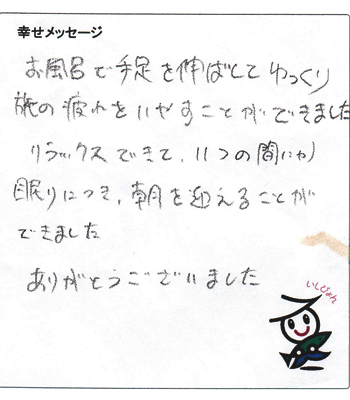 幸せメッセージ
お風呂で手足を伸ばしてゆっくり
旅の疲れをいやすことができました
リラックスできて、いつの間にか
眠りにつき、朝を迎えることが
できました
ありがとうございました
いしぴょん